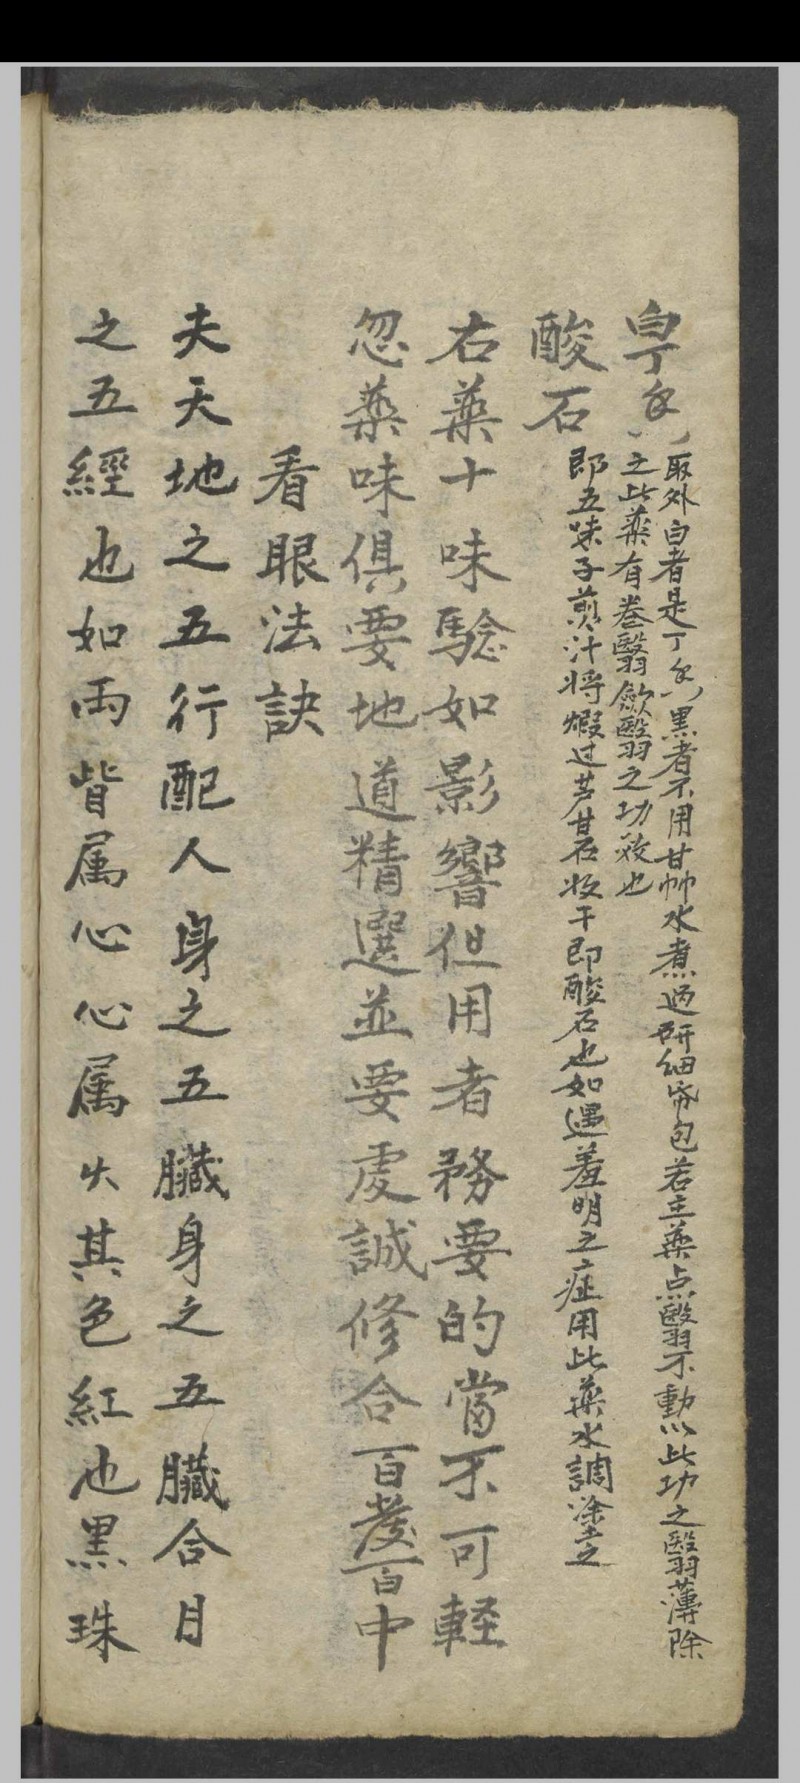 白丁香
取外白者是丁香黑者不用甘艸水煮过研细帋包若主藥点翳不動以此功之翳薄除
之此藥有卷翳斂翳之功效也
酸石
即五味子煎汁将煆过芦甘石收干即酸石也如遇羞明之症用此藥水調塗之
右藥十味騐如影響但用者務要的當不可軽
忽藥味俱要地道精選並要虔誠修合百發百中
看眼法訣
夫天地之五行配人身之五臟身之五臟合目
之五經也如両眥属心心属火其色紅也黒珠